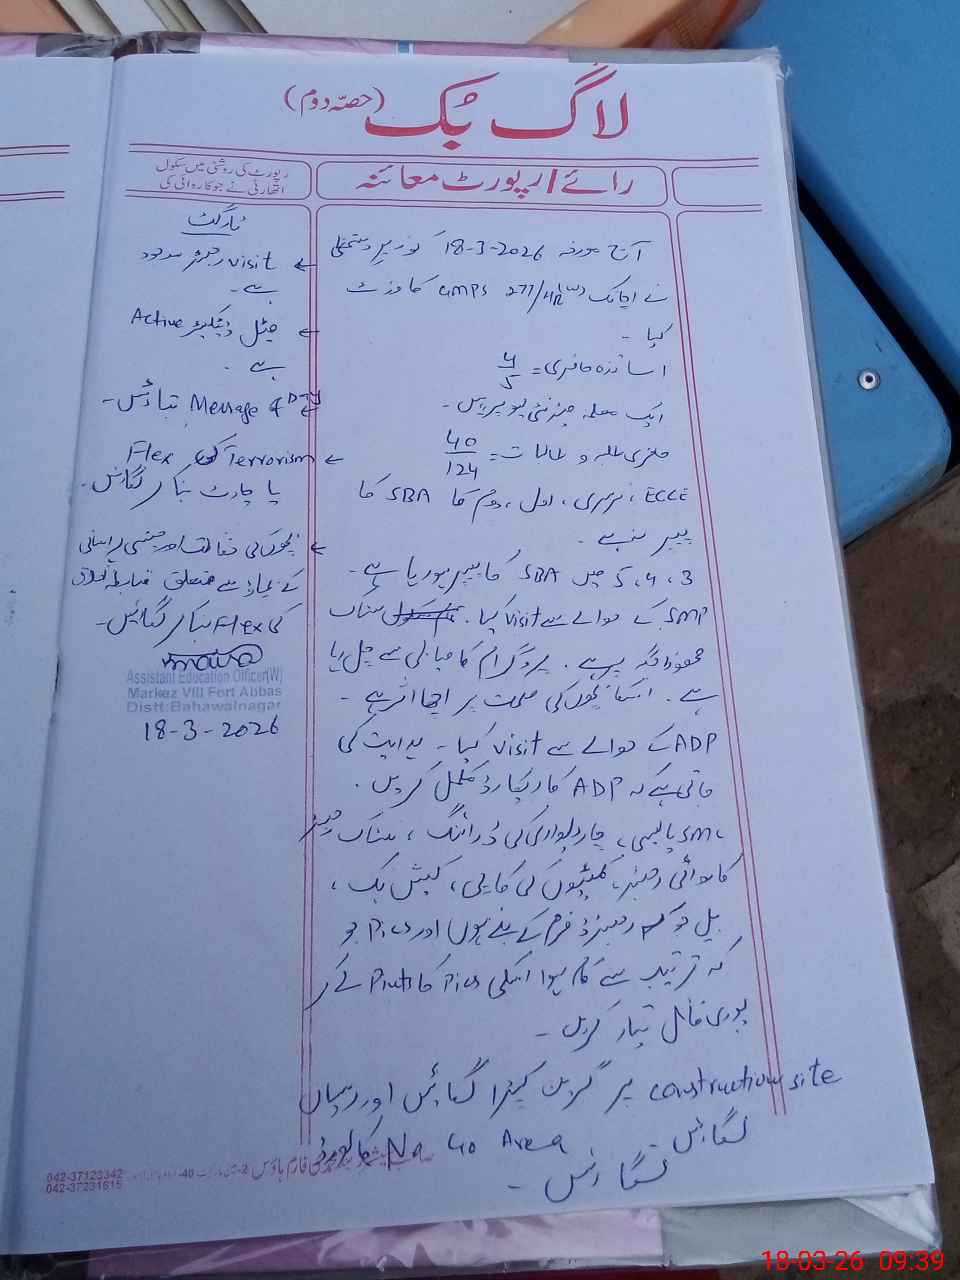 لاگ بُک (حصّہ دوم)
رائے / رپورٹ معائنہ
رپورٹ کی روشنی میں سکول
اتھارٹی نے جو کاروائی کی
آج مورخہ 2026-3-18 کو زیر دستخطی
نے اچانک GMPS 277/HR کا وزٹ
کیا -
اساتذہ حاضری = 4/5
ایک معلمہ
حاضری طلبہ و طالبات = 40/124
ECCE، نرسری، اول، دوم کا SBA کا
پیپر
3، 4، 5 میں SBA کا پیپر ہو رہا ہے -
SMP کے حوالے سے visit کیا.
محفوظ جگہ پر ہے. پروگرام کامیابی سے چل رہا
ہے. بچوں کی صحت پر اچھا اثر ہے -
ADP کے حوالے سے visit کیا - ہدایت کی
جاتی ہے کہ ADP کا ریکارڈ مکمل کریں.
پالیسی، چاردیواری کی ڈرائنگ،
کاروائی رجسٹر، کمیٹیوں کی کاپی، کیش بک،
بل جو کہ رجسٹرڈ فرم کے بنے ہوں اور Pics جو
کہ ترتیب سے کام ہوا اسکی Pics کا
پوری فائل تیار کریں -
construction site پر گرین کپڑا لگائیں اور
لگائیں -
No Go Area کا بورڈ
لگائیں -
ٹارگٹ
← visit رجسٹر موجود
ہے -
← Active
ہے.
← Message of Day بتائیں -
← Terrorism کی Flex
یا چارٹ بنا کر لگائیں -
← بچوں کی حفاظت اور جنسی ہراسانی
کے بچاؤ سے متعلق ضابطہ اخلاق
کی Flex بنا کر لگائیں -
Assistant Education Officer(W)
Markez VIII Fort Abbas
Distt: Bahawalnagar
18-3-2026
042-37123342
042-37231815
18-03-26 09:39